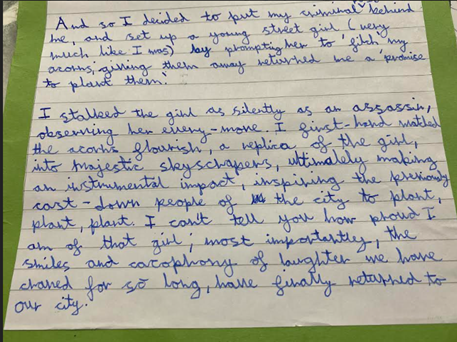 And so I decided to put my criminal behind
me, and set up a young street girl (very
much like I was) by prompting her to 'filch' my
acorns; giving them away returned me a 'promise
to plant them.'
I stalked the girl as silently as an assassin,
observing her every-move. I first-hand watched
the acorns flourish, a replica of the girl,
into majestic skyscrapers, ultimately making
an instrumental impact, inspiring the previously
cast-down people of the city to plant,
plant, plant. I can't tell you how proud I
am of that girl, most importantly, the
smiles and cacophony of laughter we have
craved for so long, have finally returned to
our city.